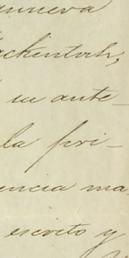 anueva
ackentosh,
su ante-
la pri-
encia ma
escrito y